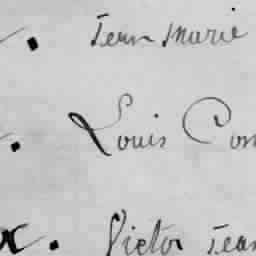 Jean Marie
Louis Con
x. Victor Jean